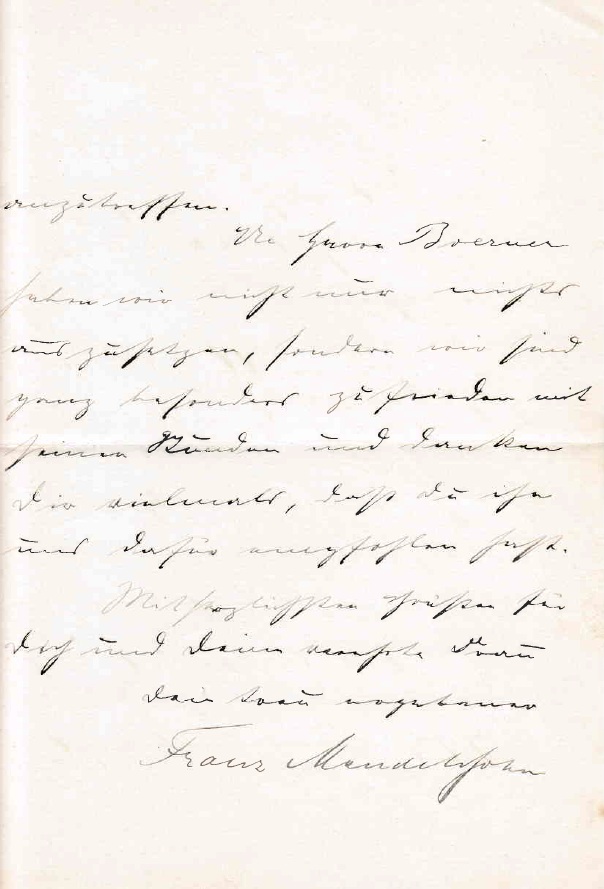 anzutreffen.
An Herrn Boerner
haben wir nicht nur nichts
auszusetzen, sondern wir sind
ganz besonders zufrieden mit
seinen Stunden und danken
Dir vielmals, daß Du ihn
uns dafür empfohlen hast.
Mit herzlichsten Grüßen für
Dich und Deine verehrte Frau
Dein treu ergebener
Franz Mendelssohn